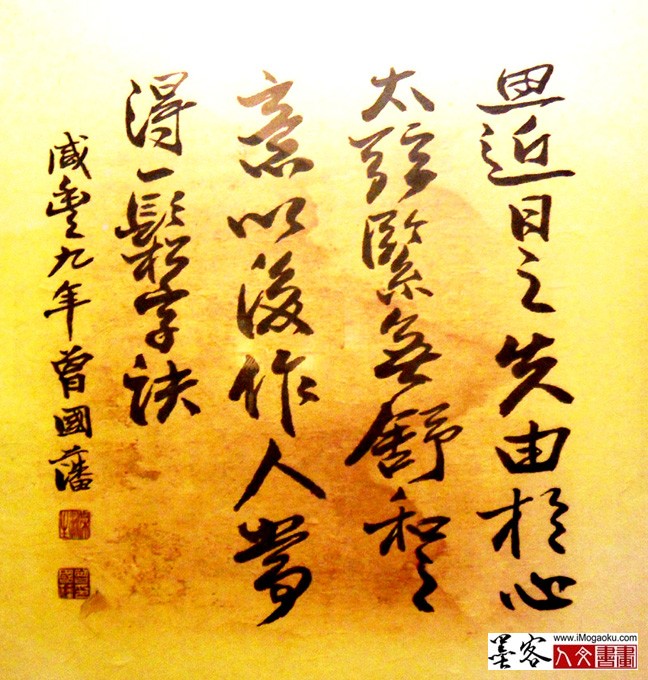 思近日之失由於心
太弦緊無舒和之
意以後作人當
得一鬆字訣
咸豐九年曾國藩
墨客
www.iMogaoku.com
人文書畫